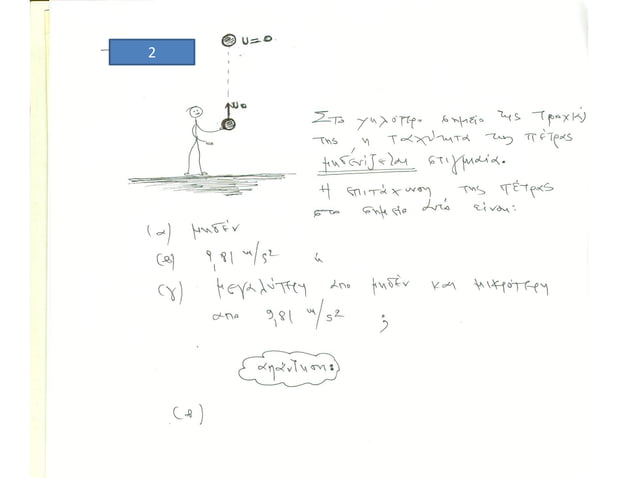 2
υ=0
υ₀
Στο ψηλότερο σημείο της τροχιάς
της η ταχύτητα της πέτρας
μηδενίζεται στιγμιαία.
Η επιτάχυνση της πέτρας
στο σημείο αυτό είναι:
(α) μηδέν
(β) 9,81 m/s² ή
(γ) μεγαλύτερη από μηδέν και μικρότερη
από 9,81 m/s² ;
απάντηση:
(β)